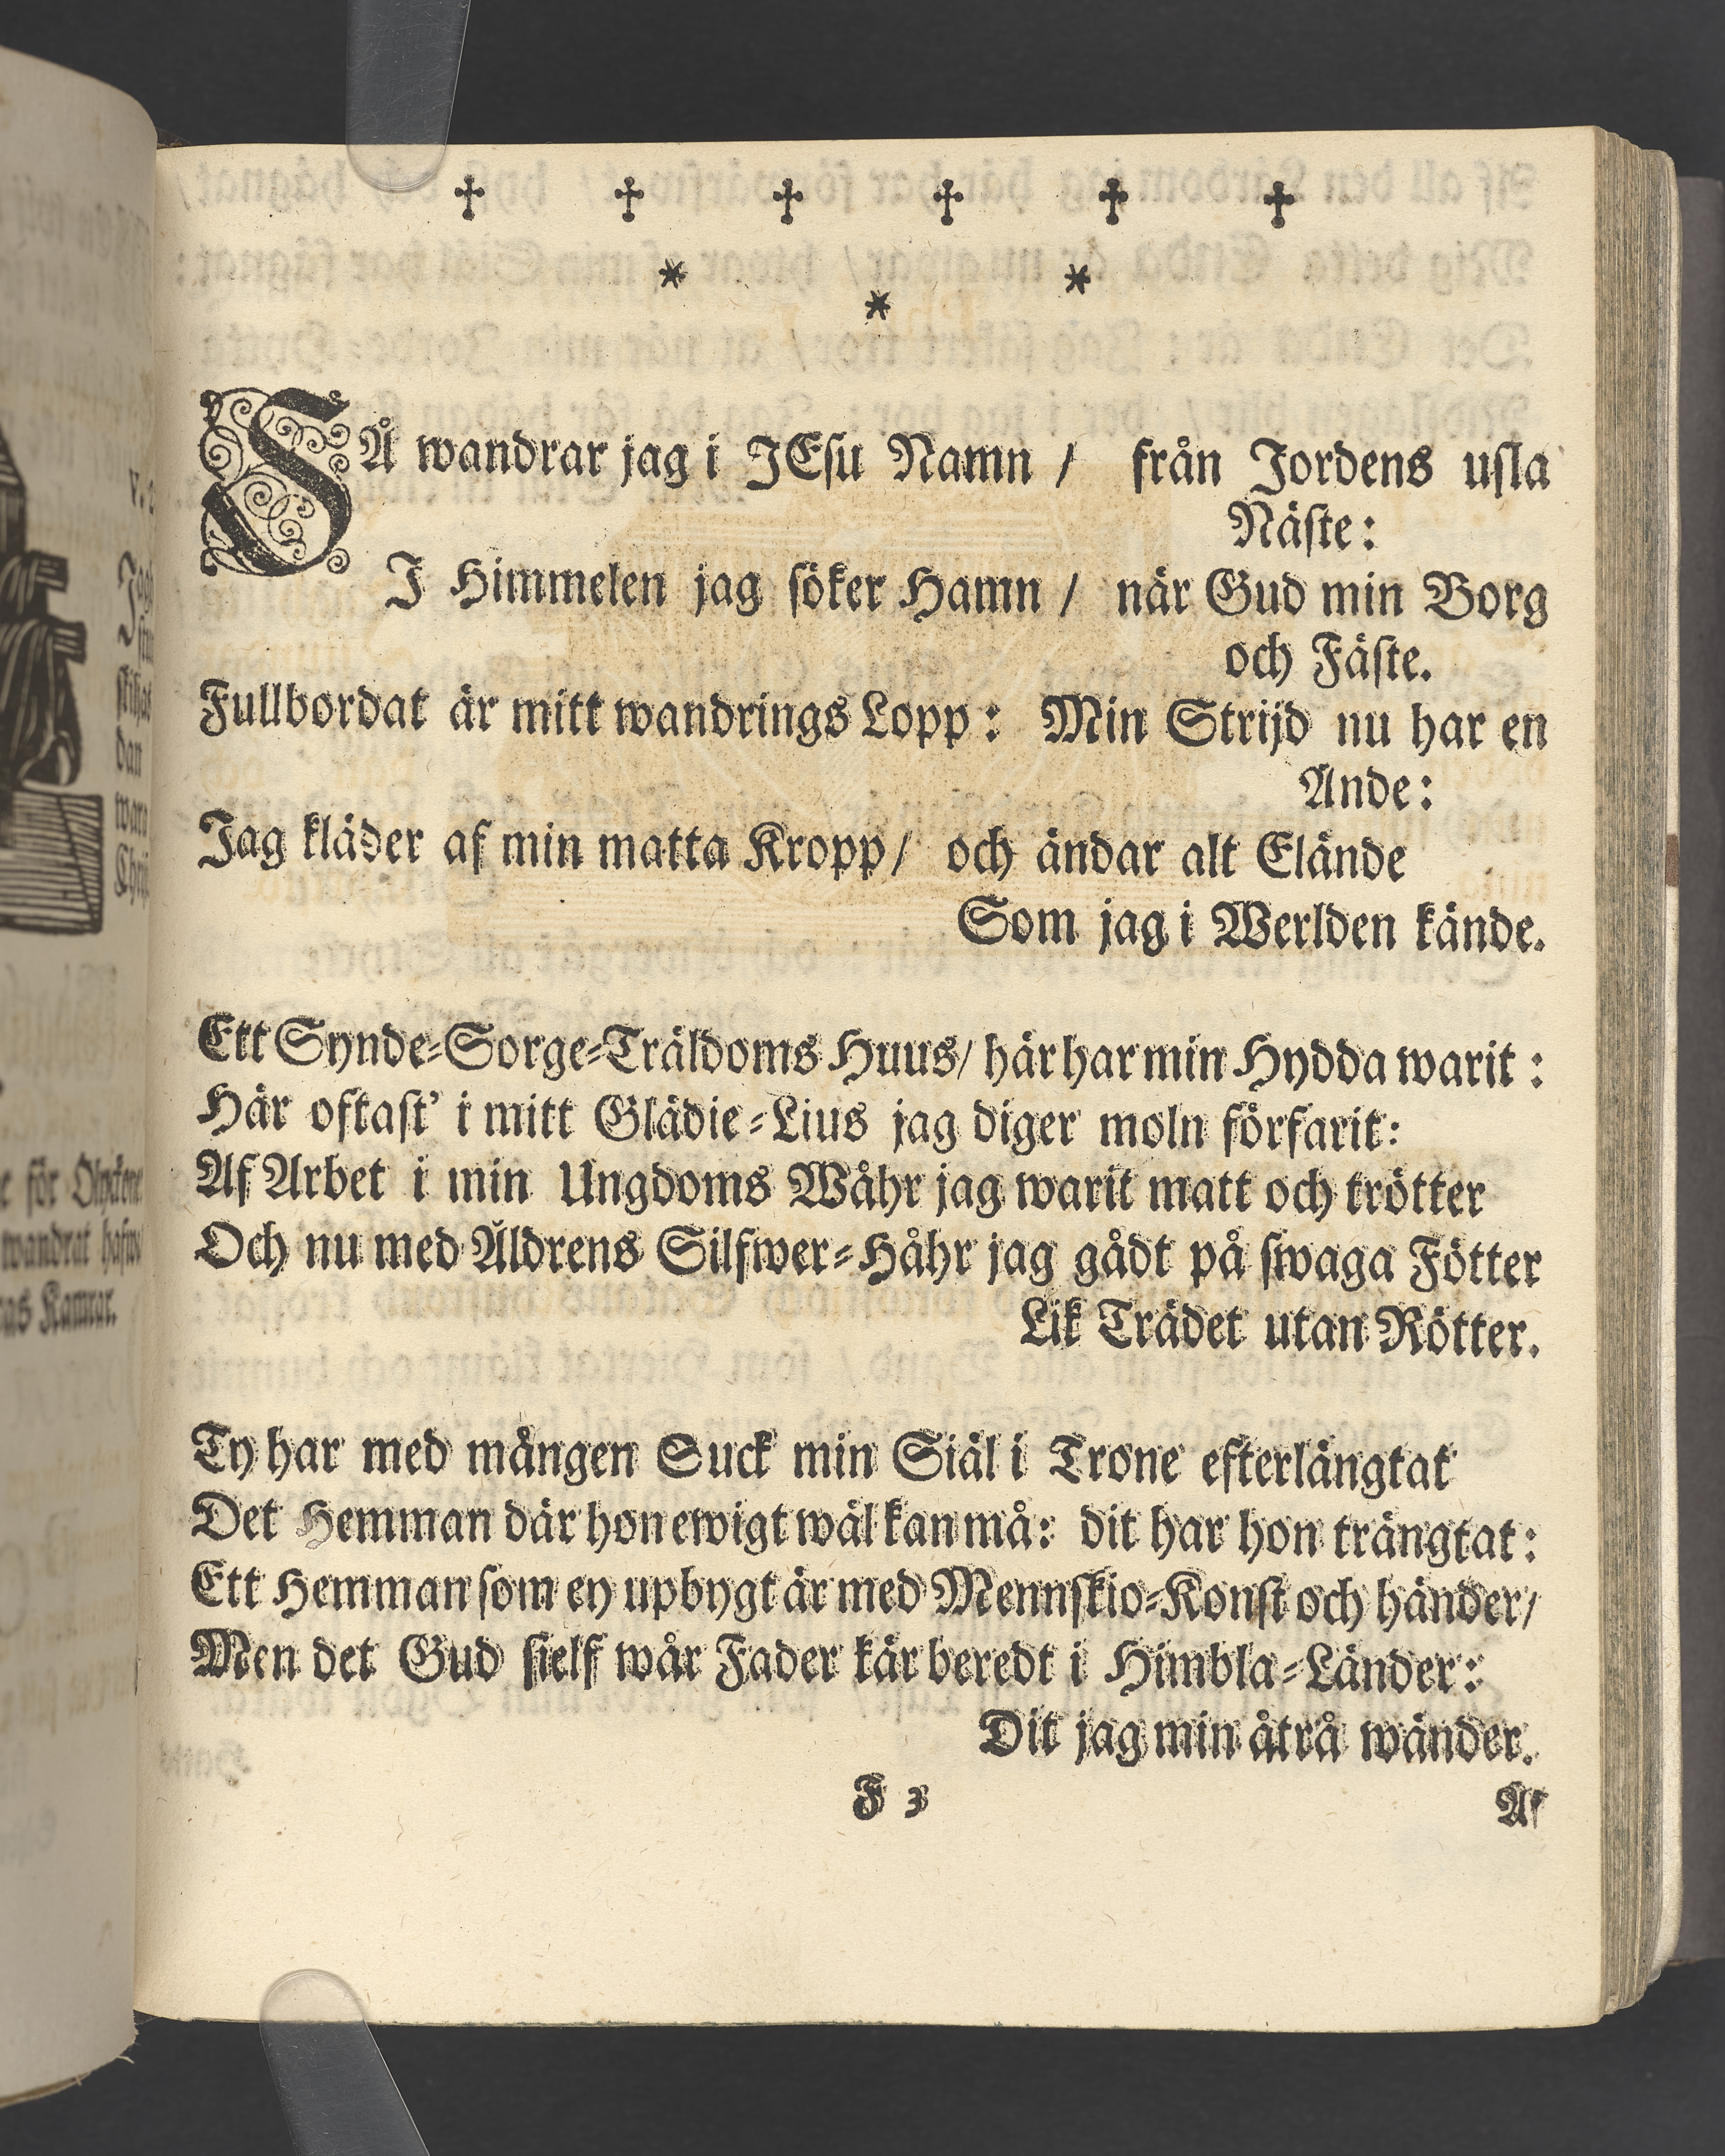 SÅ wandrar jag i JEsu Namn / från Jordens usla
Näste:
I Himmelen jag söker Hamn / när Gud min Borg
och Fäste.
Fullbordat är mitt wandrings Lopp: Min Strijd nu har en
Ände:
Jag kläder af min matta Kropp / och ändar alt Elände
Som jag i Werlden kände.
Ett Synde-Sorge-Träldoms Huus / här har min Hydda warit:
Här oftast' i mitt Glädie-Lius jag diger moln förfarit:
Af Arbet i min Ungdoms Wåhr jag warit matt och trötter
Och nu med Åldrens Silfwer-Håhr jag gådt på swaga Fötter
Lik Trädet utan Rötter.
Ty har med mången Suck min Siäl i Trone efterlängtat
Det Hemman där hon ewigt wäl kan må: dit har hon trängtat:
Ett Hemman som ey upbygt är med Mennskio-Konst och händer /
Men det Gud sielf wår Fader kär beredt i Himbla-Länder:
Dit jag min åtrå wänder.
F 3
Af